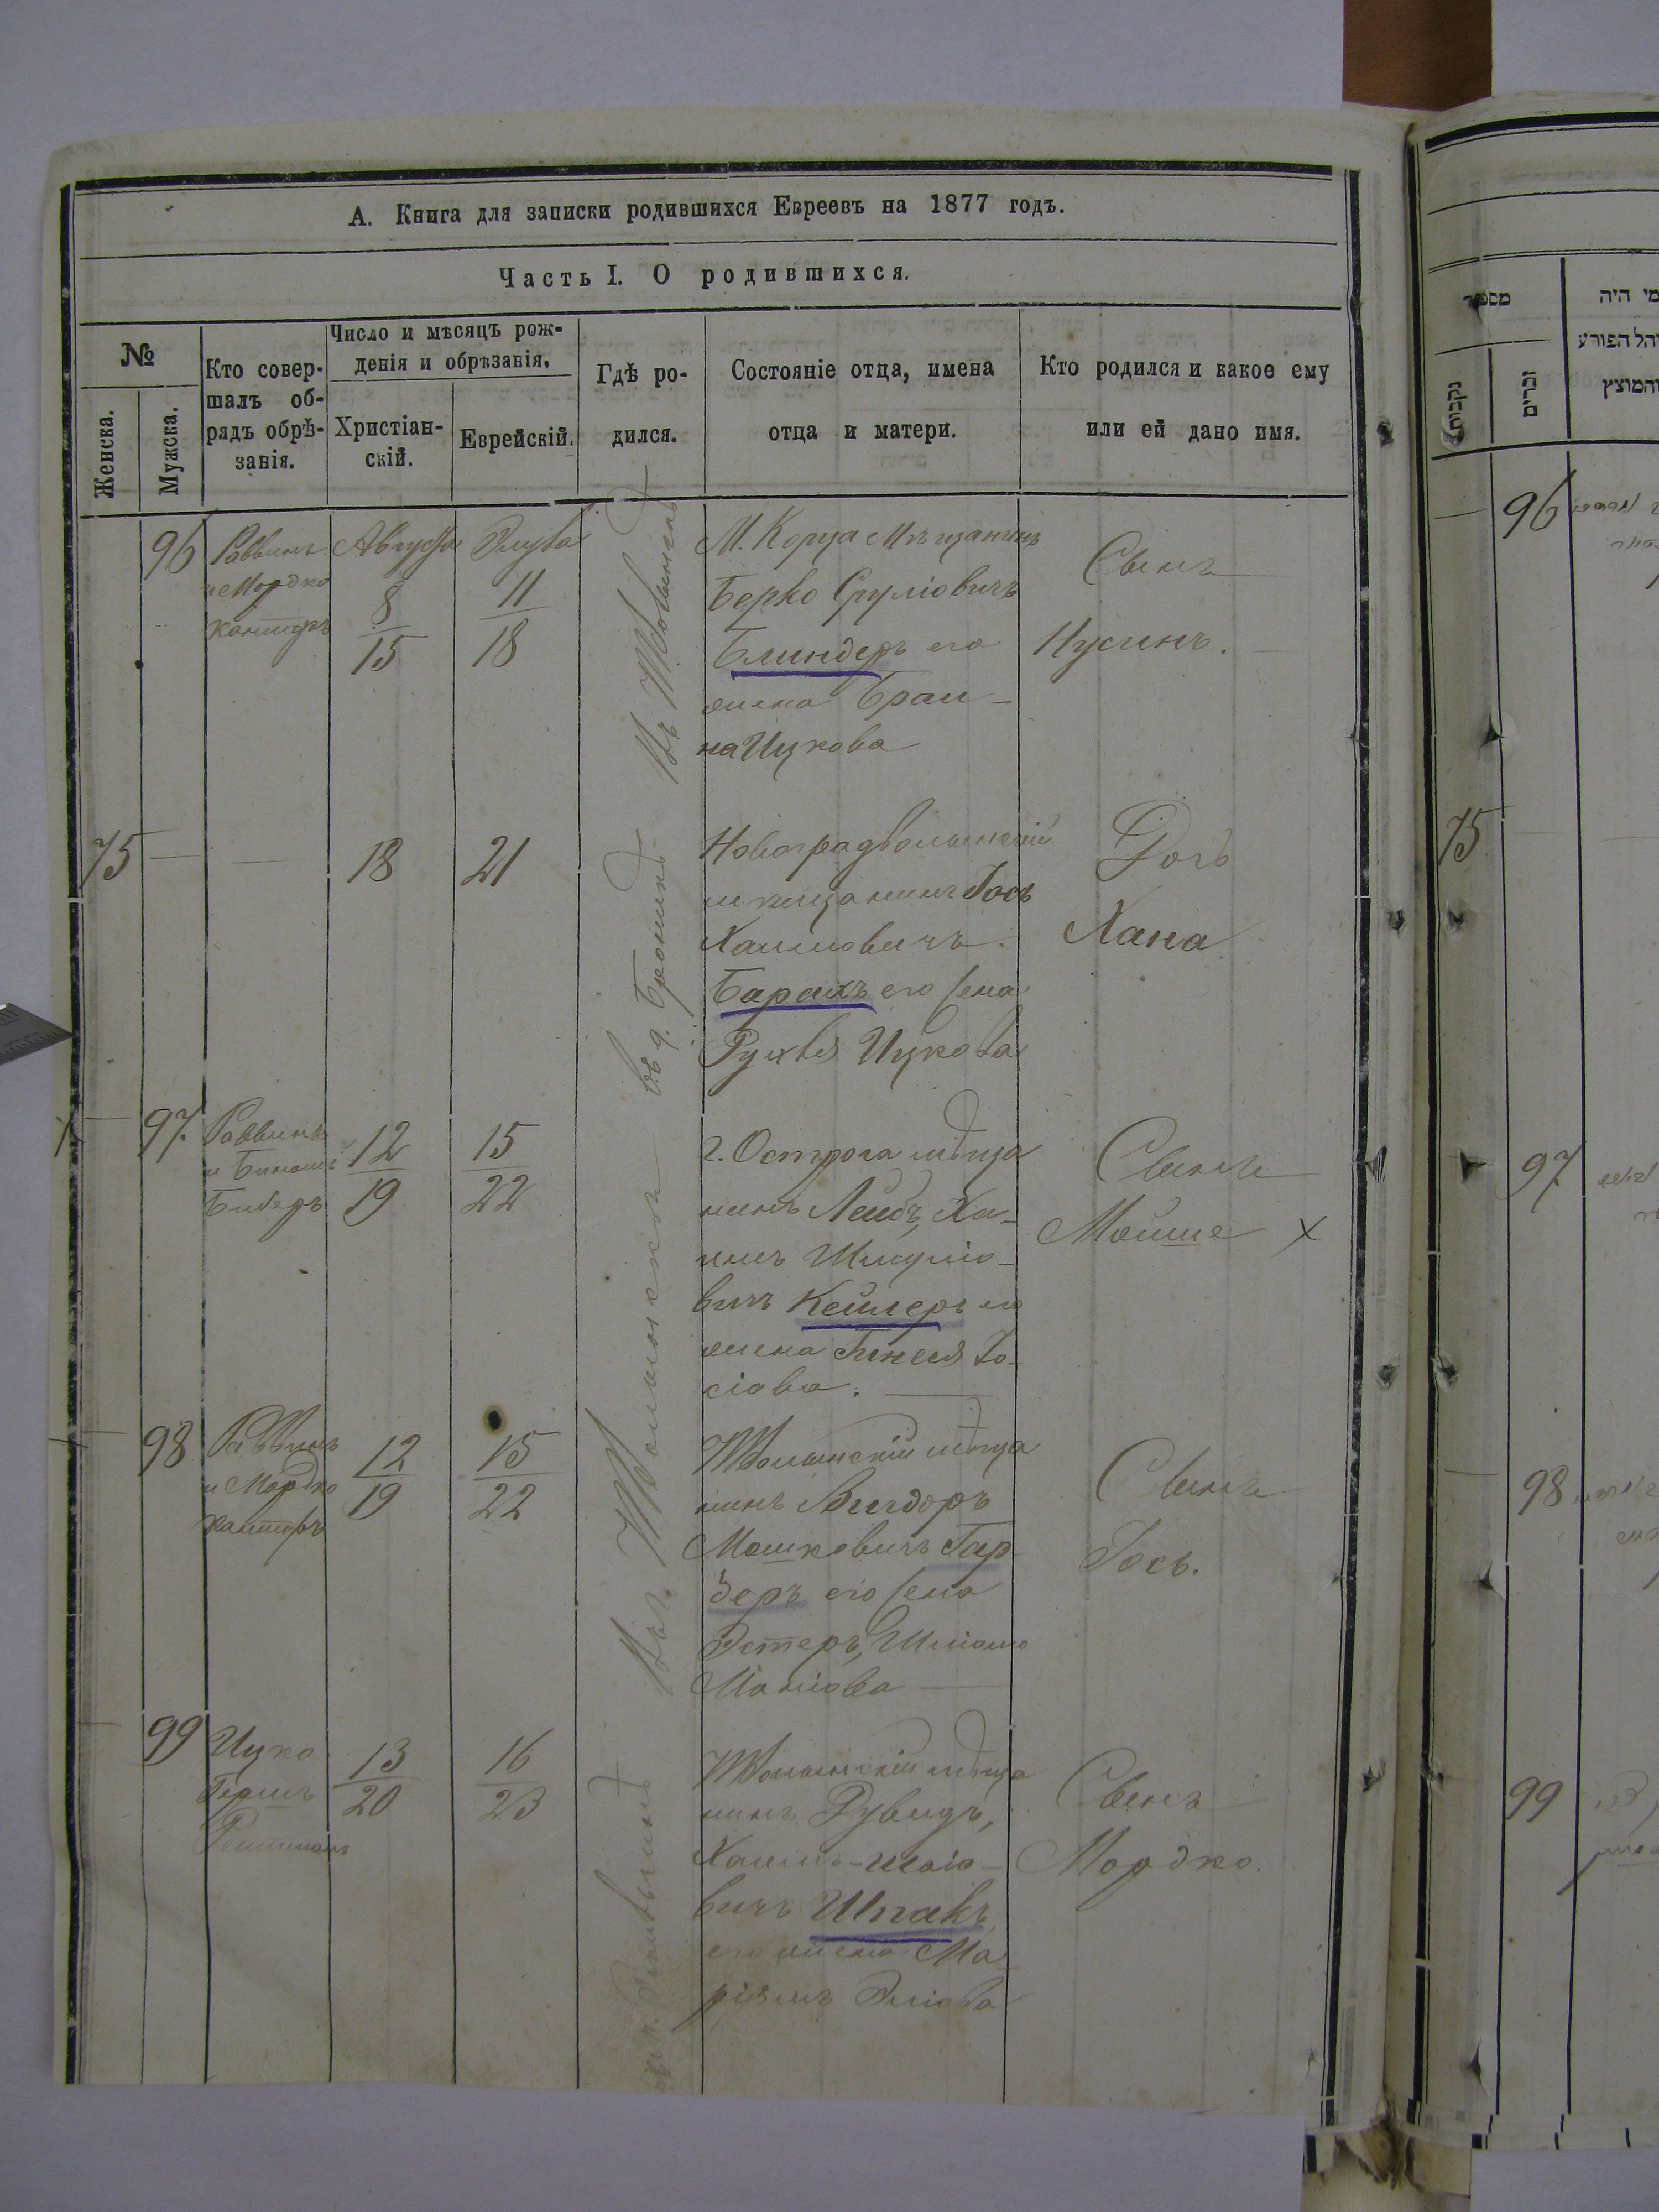 А. Книга для записки родившихся Евреевъ на 1877 годъ.
Часть I. О родившихся.
№
Женска.
Мужска.
Кто совер-
шалъ об-
рядъ обрѣ-
занія.
Число и мѣсяцъ рож-
денія и обрѣзанія.
Христіан-
скій.
Еврейскій.
Гдѣ ро-
дился.
Состояніе отца, имена
отца и матери.
Кто родился и какое ему
или ей дано имя.
96
Раввинъ
и Мордко
Канторъ
Августа
8
15
Элула
11
18
М. Корца Мѣщанинъ
Берко Сруліовичъ
Блиндеръ его
жена Браи-
на Ицкова
Сынъ
Нусинъ.
75
18
21
Новоградволынскій
мѣщанинъ Іось
Хаимовичъ
Барахъ его жена
Рухля Ицкова
Дочь
Хана
97.
Раввинъ
и
Биберъ
12
19
15
22
г. Острога мѣща
нинъ Лейбъ, Ха-
имъ Шмуліо-
вичъ Кейлеръ его
жена Гинеся Іо-
сіова.
Сынъ
Мойше х
98
Раввинъ
и Мордко
Канторъ
12
19
15
22
мѣща
нинъ Вигдоръ
Мошковичъ Гар
беръ его жена
Эстеръ, Шліомо
Маніова
Сынъ
Іось.
99
Ицко
Гершъ
Рейтманъ
13
20
16
23
мѣща
нинъ Рувинъ,
Хаимъ-
вичъ Шпакъ
его жена Ма
ріямъ Эліова
Сынъ
Мордко.
въ д.
מספר
נקבות
זכרים
מי היה
96
75
97
98
99